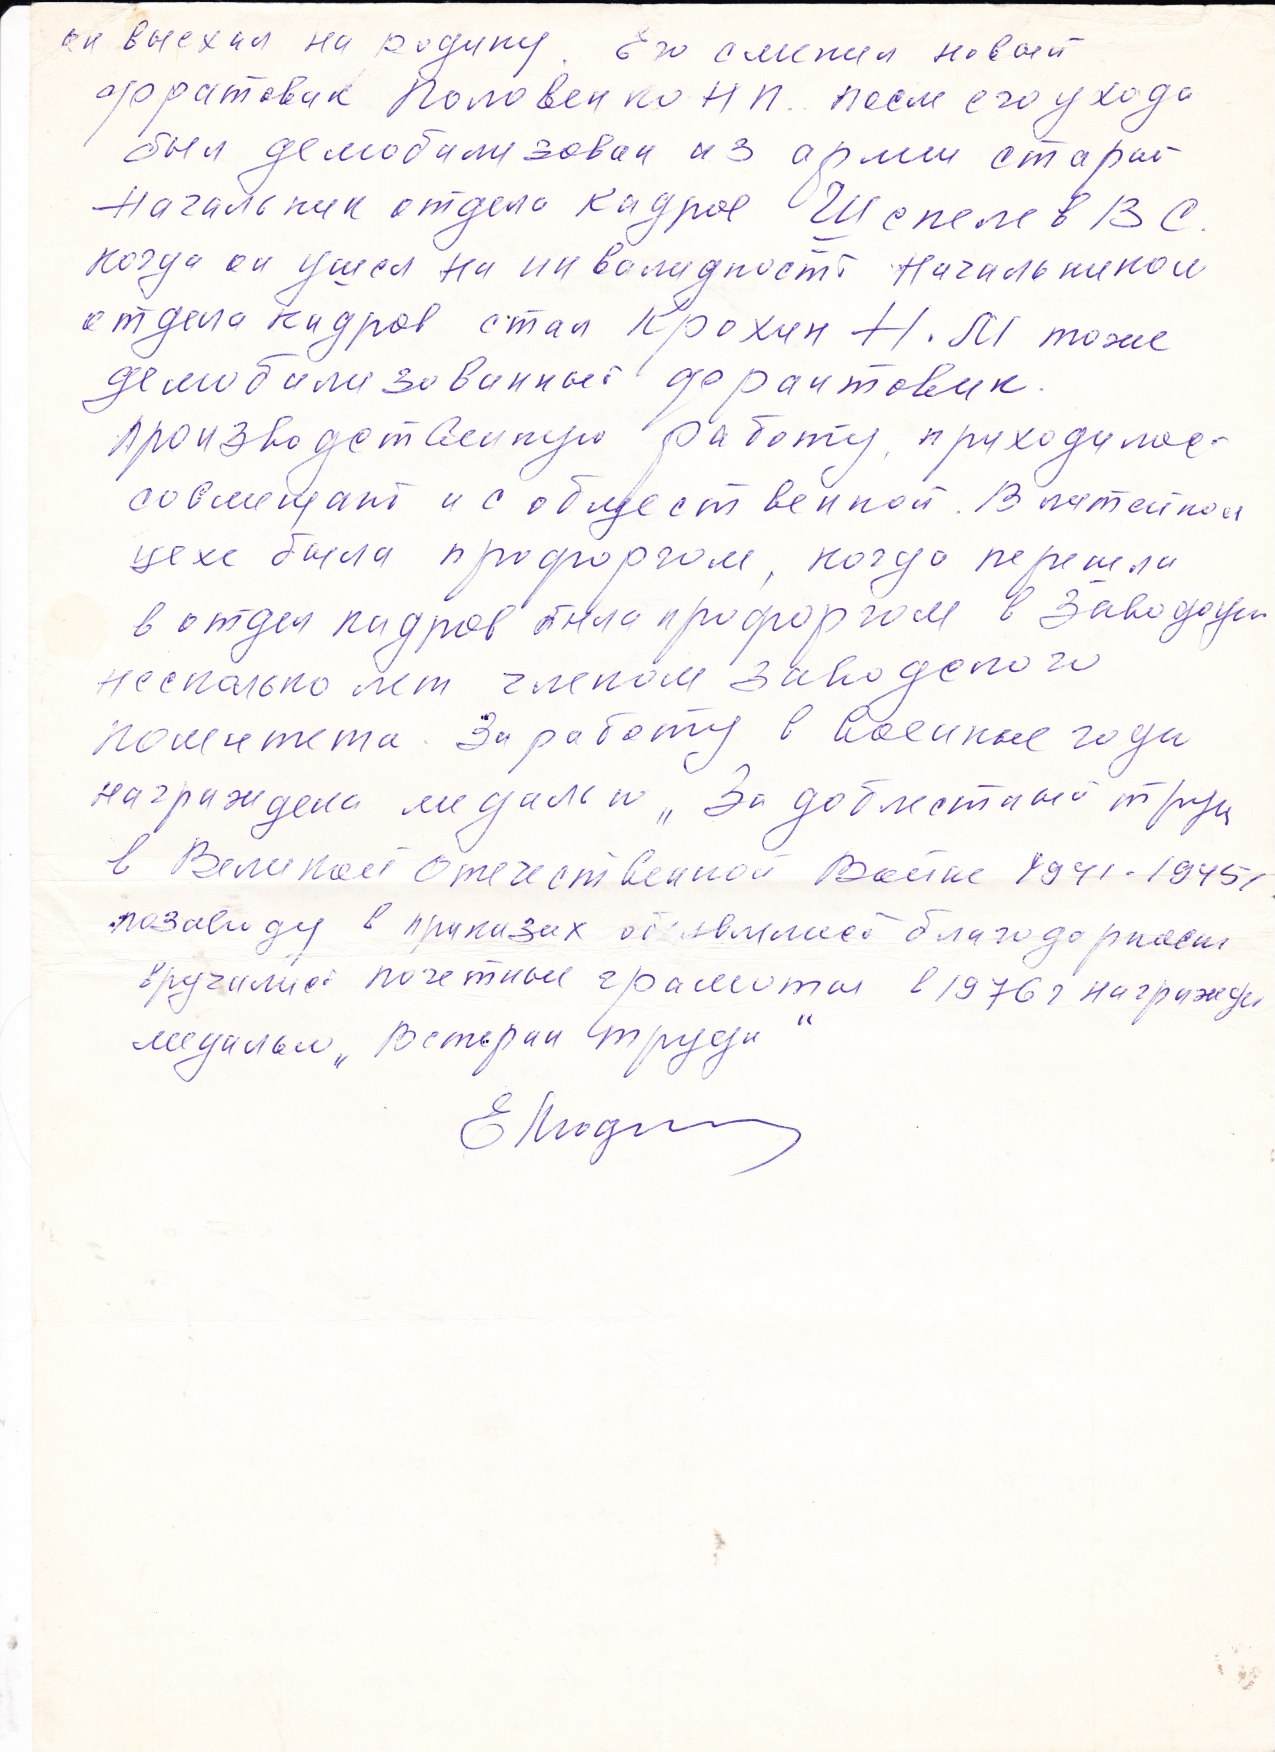 он выехал на родину. Его сменил новый
фронтовик Половенко Н П. после его ухода
был демобилизован из армии старый
Начальник отдела кадров Шепелев В С.
когда он ушел на инвалидность Начальником
отдела кадров стал Крохин Н. М тоже
демобилизованный фронтовик.
производственную работу, приходилось
совмещать и с общественной. В литейном
цехе была профоргом, когда перешла
в отдел кадров была профоргом в
несколько лет членом заводского
комитета. За работу в военные годы
награждена медалью „За доблестный труд
в Великой Отечественной Войне 1941-1945г
по заводу в приказах объявлялись благодарности
вручались почетные грамоты в 1976г
медалью „Ветеран труда"